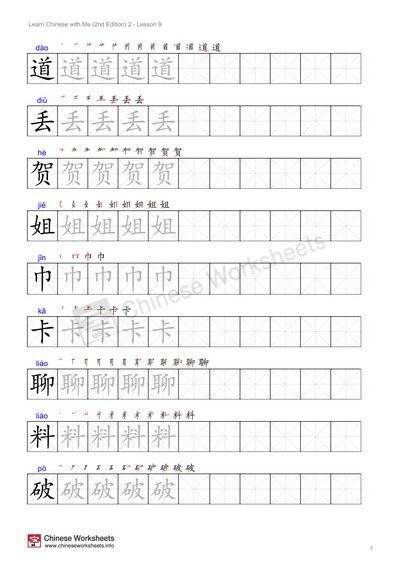 Learn Chinese with Me (2nd Edition) 2 - Lesson 9
dào
道 道 道 道 道
diū
丢 丢 丢 丢 丢
hè
贺 贺 贺 贺 贺
jiě
姐 姐 姐 姐 姐
jīn
巾 巾 巾 巾 巾
kǎ
卡 卡 卡 卡 卡
liáo
聊 聊 聊 聊 聊
liào
料 料 料 料 料
pò
破 破 破 破 破
Chinese Worksheets
Chinese Worksheets
www.chineseworksheets.info
1